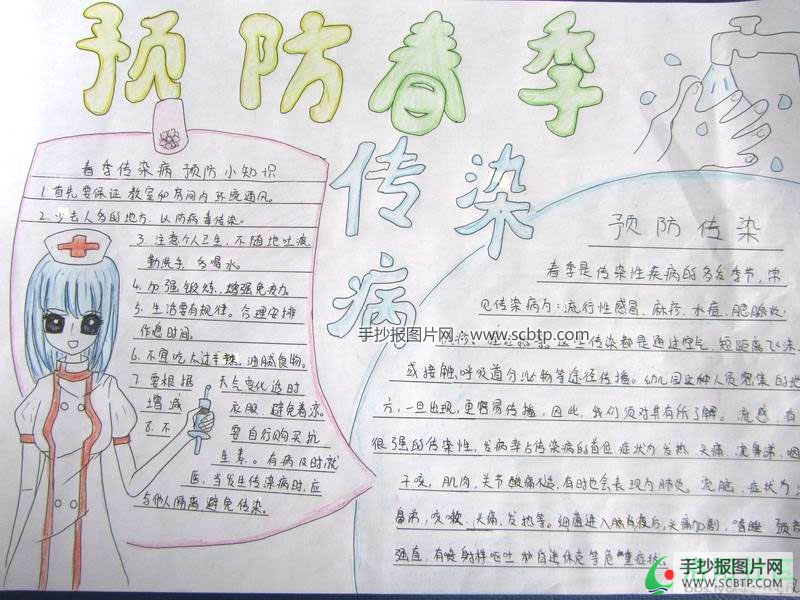 预防春季
传染
病
春季传染病预防小知识
1.首先要保证教室和房间内环境通风。
2.少去人多的地方,以防病毒传染。
3.注意个人卫生,不随地吐痰
勤洗手,多喝水。
4.加强锻炼,增强免疫力。
5.生活要有规律。合理安排
作息时间。
6.不宜吃太过辛辣,油腻食物。
7.要根据天气变化适时
增减衣服,避免着凉。
8.不要自行购买抗
生素。有病及时就
医,当发生传染病时,应
与他人隔离避免传染。
预防传染
春季是传染性疾病的多发季节,常
见传染病为:流行性感冒,麻疹,水痘,腮腺炎
这些传染都是通过空气,短距离飞沫
或接触呼吸道分泌物等途径传播。幼儿园这种人员密集的地
方,一旦出现,更容易传播,因此,我们须对其有所了解。流感,有
很强的传染性,发病率占传染病的首位,症状为发热,头痛,流鼻涕,咽
干咳,肌肉,关节酸痛不适,有时也会表现为肺炎。流脑,症状为
鼻涕,咳嗽,头痛,发热等。细菌进入脑脊液后,头痛加剧,嗜睡,颈部
强直,有喷射样呕吐和自迷休克等危重症状。
手抄报图片网:www.scbtp.com
手抄报图片网
WWW.SCBTP.COM